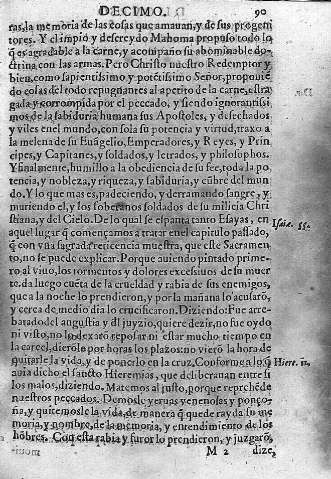 DECIMO. 90
ras, la memoria de las cosas que amauan, y de sus progeni
tores. Y el impio y descreydo Mahoma propuso todo lo
q̃ es agradable a la carne, y acompaño su abominable do-
ctrina con las armas. Pero Christo nuestro Redemptor y
bien, como sapientissimo y potẽtissimo Señor, proponiẽ
do cosas del todo repugnantes al apetito de la carne, estra
gada y corrompida por el peccado, y siendo ignorantissi
mos de la sabiduria humana sus Apostoles, y desechados
y viles en el mundo, con sola su potencia y virtud, traxo a
la melena de su Euãgelio, Emperadores, y Reyes, y Prin
cipes, y Capitanes, y soldados, y letrados, y philosophos.
Y finalmente, humillo a la obediencia de su fee, toda la po
tencia, y nobleza, y riqueza, y sabiduria, y cũbre del mun
do. Y lo que mas es, padeciendo, y derramando sangre, y
muriendo el, y los soberanos soldados de su milicia Chri
stiana, y del Cielo. De lo qual se espanta tanto Esayas, en
aquel lugar q̃ començamos a tratar en el capitulo passado, Isaiæ. 53.
que con vna sagrada reticencia muestra, que este Sacramen
to, no se puede explicar. Porque auiendo pintado prime-
ro al viuo, los tormentos y dolores excessiuos de su muer
te, da luego cuẽta de la crueldad y rabia de sus enemigos,
que a la noche lo prendieron, y por la mañana lo acusarõ,
y cerca de medio dia lo crucificaron. Diziendo: Fue arre-
batado del angustia y dl juyzio, quiere dezir, no fue oydo
ni visto, no lo dexarõ reposar ni estar mucho tiempo en
la carcel, dierõle por horas los plazos: no vierõ la hora de
quitarle la vida, y de ponerlo en la cruz. Conforme a lo q̃ Hiere. 11.
auia dicho el sancto Hieremias, que deliberauan entre si
los malos, diziendo. Matemos al justo, porque reprehẽde
nuestros peccados. Demosle yeruas venenosas, y ponço-
ña, y quitemosle la vida, de manera q̃ quede rayda su me
moria, y nombre, de la memoria, y entendimiento de los
hõbres. Con esta rabia y furor lo prendieron, y juzgarõ,
M 2 dize,